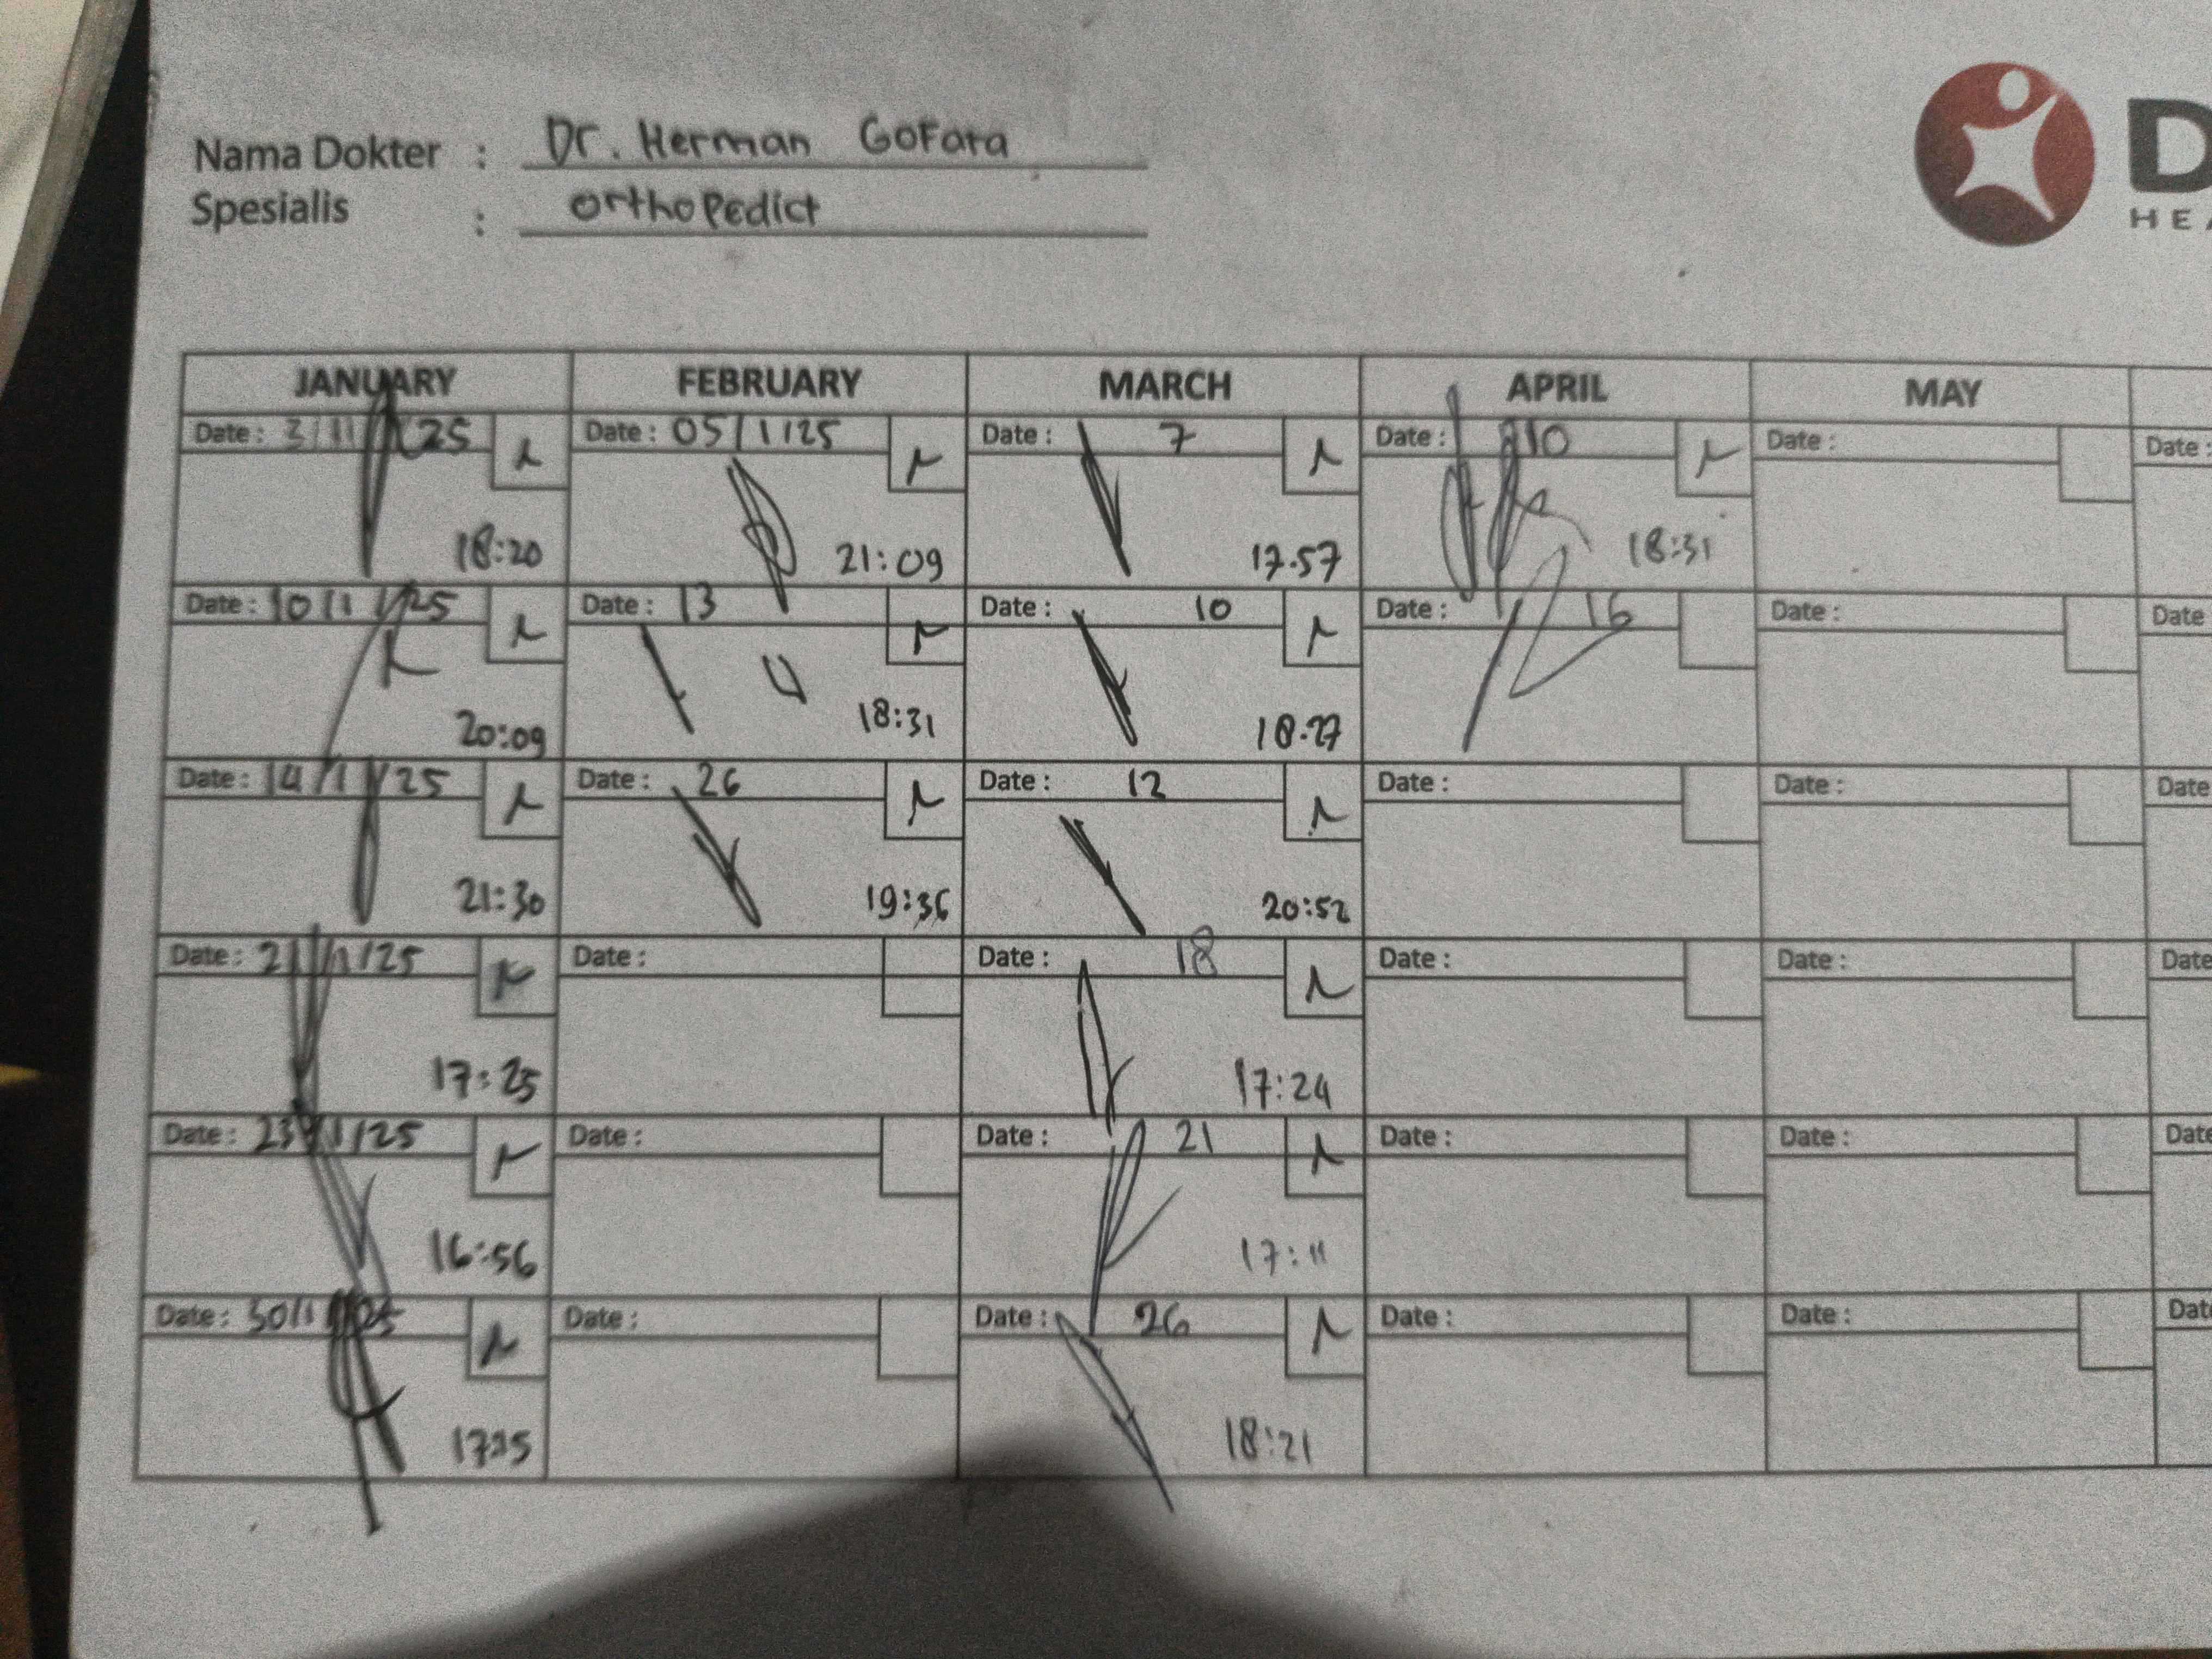 Nama Dokter : Dr. Herman Gofara
Spesialis : Orthopedict
D
HEA
JANUARY FEBRUARY MARCH APRIL MAY
Date : 3/1/25 Date : 05/1/25 Date : 7 Date : 10 Date : Date :
18:20 21:09 17.57 18:31
Date : 10/1/25 Date : 13 Date : 10 Date : 16 Date : Date
20:09 18:31 18.27
Date : 14/1/25 Date : 26 Date : 12 Date : Date : Date
21:30 19:36 20:52
Date : 21/1/25 Date : Date : 18 Date : Date : Date
17:25 17:24
Date : 23/1/25 Date : Date : 21 Date : Date : Date
16:56 17:11
Date : 30/1/25 Date : Date : 26 Date : Date : Date
18:21